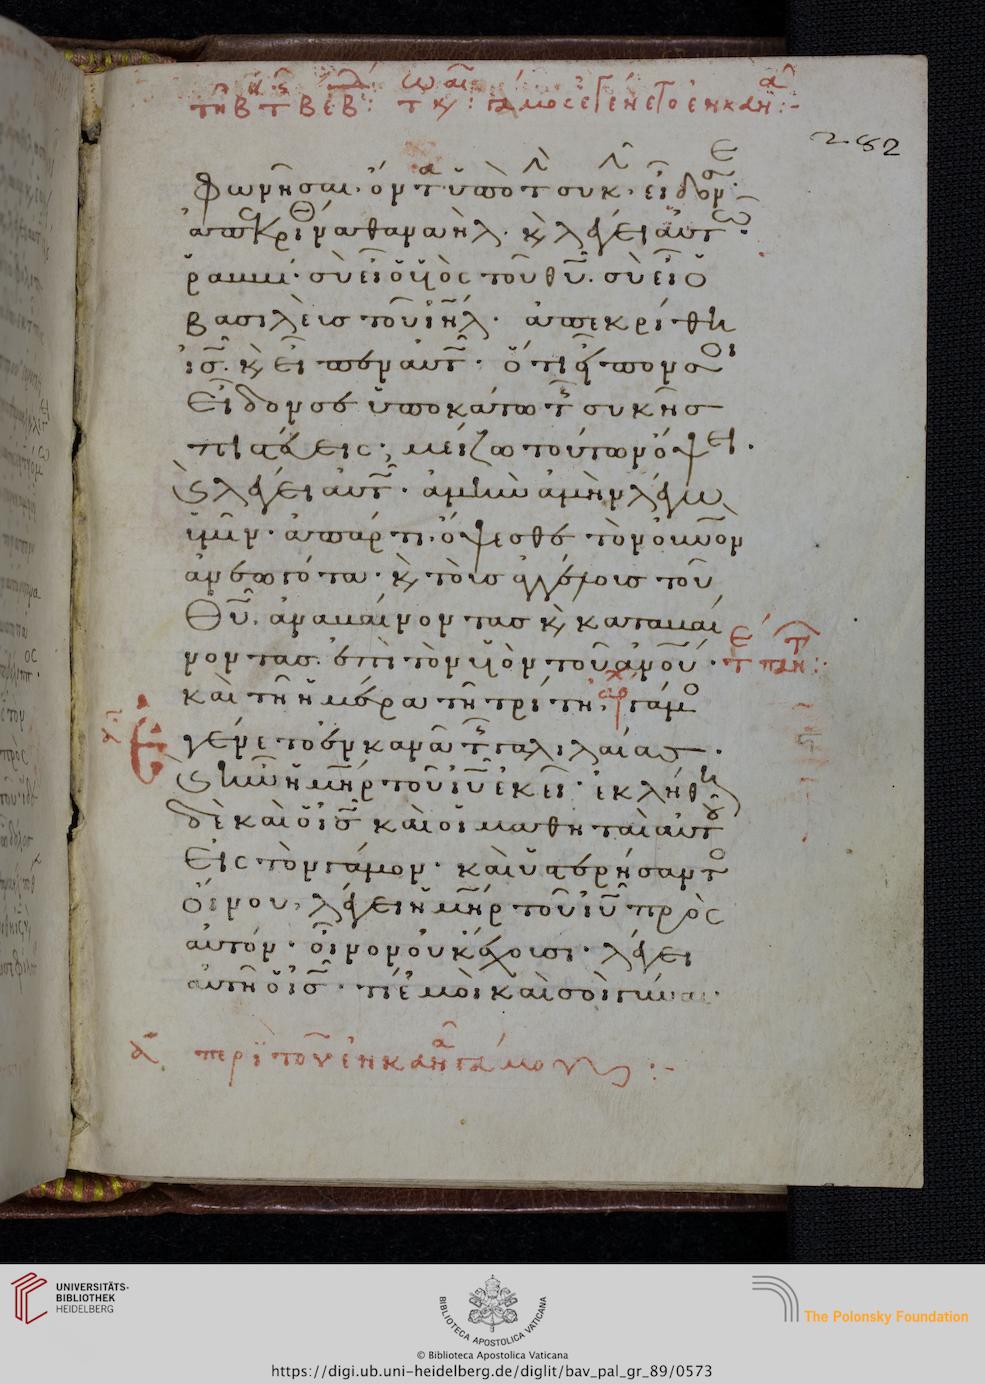 τῆ β τ β ἑβ: τ κ: γάμος ἐγένετο ἐν κανᾶ:-
282
φωνῆσαι· ὄντα ὑπὸ τὴν συκῆν· εἶδόν σε·
ἀπεκρίθη ναθαναὴλ· κ λέγει αὐτῶ·
ῥαββί· σὺ εἶ ὁ υἱὸς τοῦ θυ̅· σὺ εἶ ὁ
βασιλεὺς τοῦ ιη̅λ· ἀπεκρίθη
ις̅· κ εἶπεν αὐτῶ· ὅτι εἶπον σοι
εἶδον σε ὑποκάτω τῆς συκῆς
πιστεύεις; μείζω τούτων ὄψει·
κ λέγει αὐτῶ· ἀμὴν ἀμὴν λέγω
ὑμῖν· ἀπάρτι ὄψεσθε τὸν οὐνον
ἀνεωγότα· κ τοὺς ἀγγέλους τοῦ
θυ̅· ἀναβαίνοντας κ καταβαί
νοντας· ἐπὶ τὸν υἱὸν τοῦ ἀνου̅·
καὶ τῆ ἡμέρα τῆ τρίτη, γάμος
ἐγένετο ἐν κανᾶ τῆς γαλιλαίας·
κ ἦν ἡ μη̅ρ τοῦ ιυ̅ ἐκεῖ· ἐκλήθη
δὲ καὶ ὁ ις̅ καὶ οἱ μαθηταὶ αὐτοῦ
εἰς τὸν γάμον· καὶ ὑστερήσαντος
οἴνου, λέγει ἡ μη̅ρ τοῦ ιυ̅ πρὸς
αὐτόν· οἶνον οὐκ ἔχουσι· λέγει
αὐτῆ ὁ ις̅· τί ἐμοὶ καὶ σοὶ γύναι·
α περὶ τοῦ ἐν κανᾶ γάμου:-
UNIVERSITÄTS-
BIBLIOTHEK
HEIDELBERG
BIBLIOTECA APOSTOLICA VATICANA
The Polonsky Foundation
© Biblioteca Apostolica Vaticana
https://digi.ub.uni-heidelberg.de/diglit/bav_pal_gr_89/0573